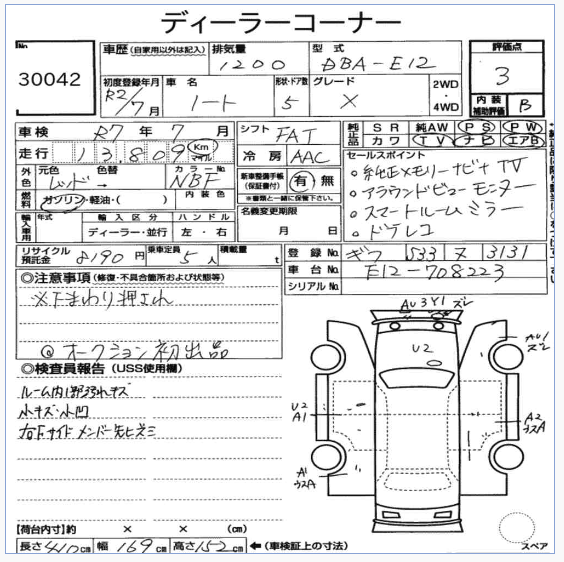 ディーラーコーナー
No. 30042
車歴 (自家用以外は記入) 排気量 1200 型式 DBA-E12 評価点 3
初度登録年月 R2/7月 車名 ノート 形状・ドア数 5 グレード X 2WD・4WD 内装補助評価 B
車検 R7年7月 シフト FAT 純正品 SR 純AW PS PW カワ TV ナビ エアB
走行 13,809 Km マイル 冷房 AAC
セールスポイント
外色 元色 レッド→ 色替 カラーNo. NBF 内装色
新車整備手帳(保証書付) 有 無
※書類と一緒に保管下さい。
燃料 ガソリン・軽油・( )
名義変更期限 月 日
・純正メモリーナビ TV
・アラウンドビューモニター
・スマートルームミラー
・ドラレコ
輸入車用 年式 輸入区分 ディーラー・並行 ハンドル 左・右
リサイクル預託金 8190円 乗車定員 5人 積載量 t
登録No. ギフ 533 ヌ 3131
車台No. E12-708223
シリアルNo.
◎注意事項 (修復・不具合箇所および状態等)
※下まわり押され
@オークション初出品
◎検査員報告 (USS使用欄)
ルーム内1部弱れキズ
小キズ・小凹
右Fサイドメンバー先ヒズミ
AU3 Y1 ズレ
U2
AU1 ズレ
U2 A1
A2 ウスA
A1 ウスA
【荷台内寸】約 × × (cm)
長さ 410cm 幅 169cm 高さ 152cm ←(車検証上の寸法)
スペア